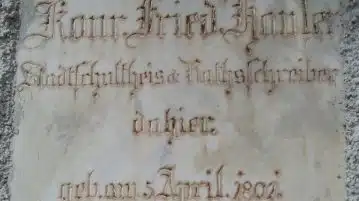 Konr. Fried. Hauser
Stadtschultheis & Rathsschreiber
dahier.
geb. am 5 April. 1801.